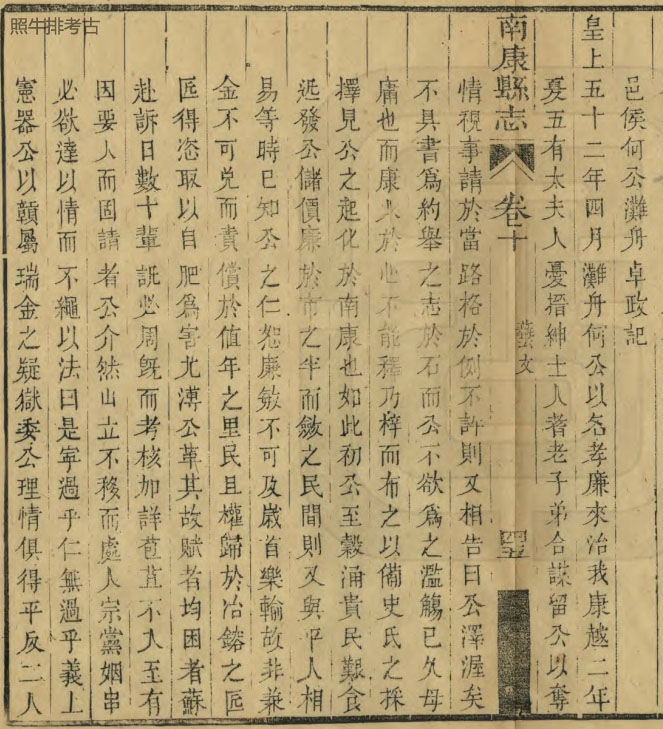 照牛排考古
邑侯何公灘舟卓政記
皇上五十二年四月灘舟何公以名孝廉來治我康越二年
憂五有太夫人憂搢紳士人耆老子弟合謀留公以奪
南康縣志 卷十 藝文
情視事請於當路格於例不許則又相告曰公澤渥矣
不具書爲約舉之志於石而公不欲爲之濫觴已久母
庸也而康人於心不能釋乃梓而布之以備史氏之採
擇見公之起化於南康也如此初公至穀涌貴民艱食
迯發公儲價廉於市之半而斂之民間則又與平人相
易等時已知公之仁恕廉敏不可及歲首樂輸故非兼
金不可兌而責償於值年之里民且權歸於冶鎔之匠
匠得恣取以自肥爲害尤溥公革其故賦者均困者蘇
赴訴日數十輩訊必周旣而考核加詳苞苴不入至有
因要人而固請者公介然山立不移而處人宗黨姻串
必欲達以情而不繩以法曰是寧過乎仁無過乎義上
憲器公以贛屬瑞金之疑獄委公理情俱得平反二人